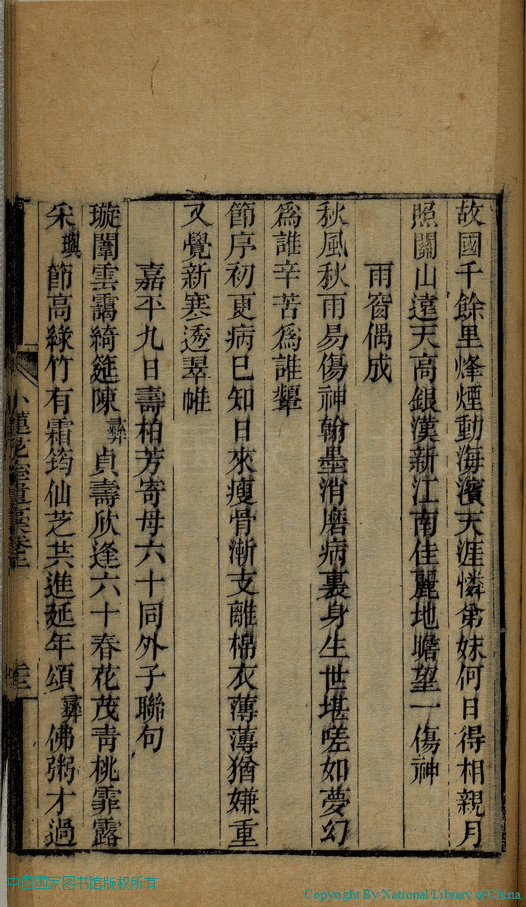 故國千餘里烽煙動海濱天涯憐弟妹何日得相親月
照關山遠天高銀漢新江南佳麗地瞻望一傷神
雨窗偶成
秋風秋雨易傷神翰墨消磨病裏身生世堪嗟如夢幻
爲誰辛苦爲誰顰
節序初更病已知日來瘦骨漸支離棉衣薄薄猶嫌重
又覺新寒透翠帷
嘉平九日壽柏芳寄母六十同外子聯句
璇闈雲靄綺筵陳彝貞壽欣逢六十春花茂靑桃霏露
采璵節高綠竹有霜筠仙芝共進延年頌彝佛粥才過
小蓮花室遺稾卷上
中国国家图书馆版权所有
Copyright By National Library of China